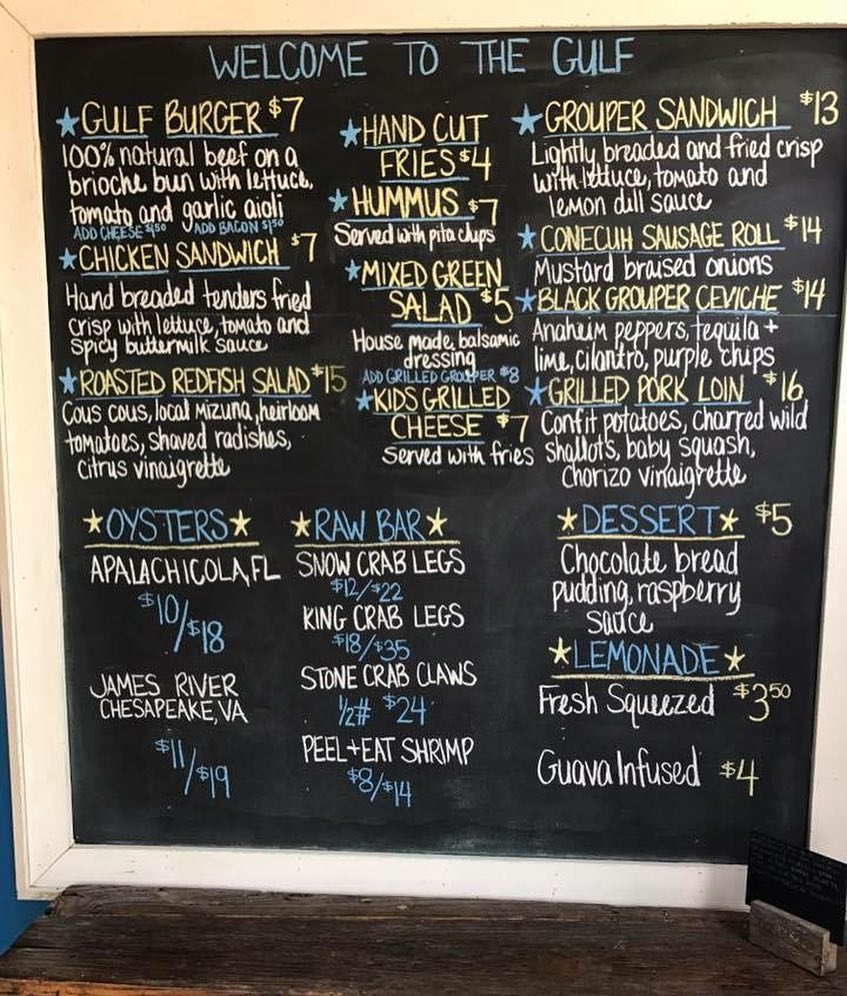 WELCOME TO THE GULF
★GULF BURGER $7
100% natural beef on a
brioche bun with lettuce,
tomato and garlic aioli
ADD CHEESE $1.50 ADD BACON $1.50
★CHICKEN SANDWICH $7
Hand breaded tenders fried
crisp with lettuce, tomato and
spicy buttermilk sauce
★ROASTED REDFISH SALAD $15
Cous cous, local mizuna, heirloom
tomatoes, shaved radishes,
citrus vinaigrette
★HAND CUT
FRIES $4
★HUMMUS $7
Served with pita chips
★MIXED GREEN
SALAD $5
House made, balsamic
dressing
ADD GRILLED GROUPER $8
★KIDS GRILLED
CHEESE $7
Served with fries
★GROUPER SANDWICH $13
Lightly breaded and fried crisp
with lettuce, tomato and
lemon dill sauce
★CONECUH SAUSAGE ROLL $14
Mustard braised onions
★BLACK GROUPER CEVICHE $14
Anaheim peppers, tequila +
lime, cilantro, purple chips
★GRILLED PORK LOIN $16
Confit potatoes, charred wild
shallots, baby squash,
chorizo vinaigrette
★OYSTERS★
APALACHICOLA, FL
$10/$18
JAMES RIVER
CHESAPEAKE, VA
$11/$19
★RAW BAR★
SNOW CRAB LEGS
$12/$22
KING CRAB LEGS
$18/$35
STONE CRAB CLAWS
1/2# $24
PEEL+EAT SHRIMP
$8/$14
★DESSERT★ $5
Chocolate bread
pudding, raspberry
sauce
★LEMONADE★
Fresh Squeezed $3.50
Guava Infused $4